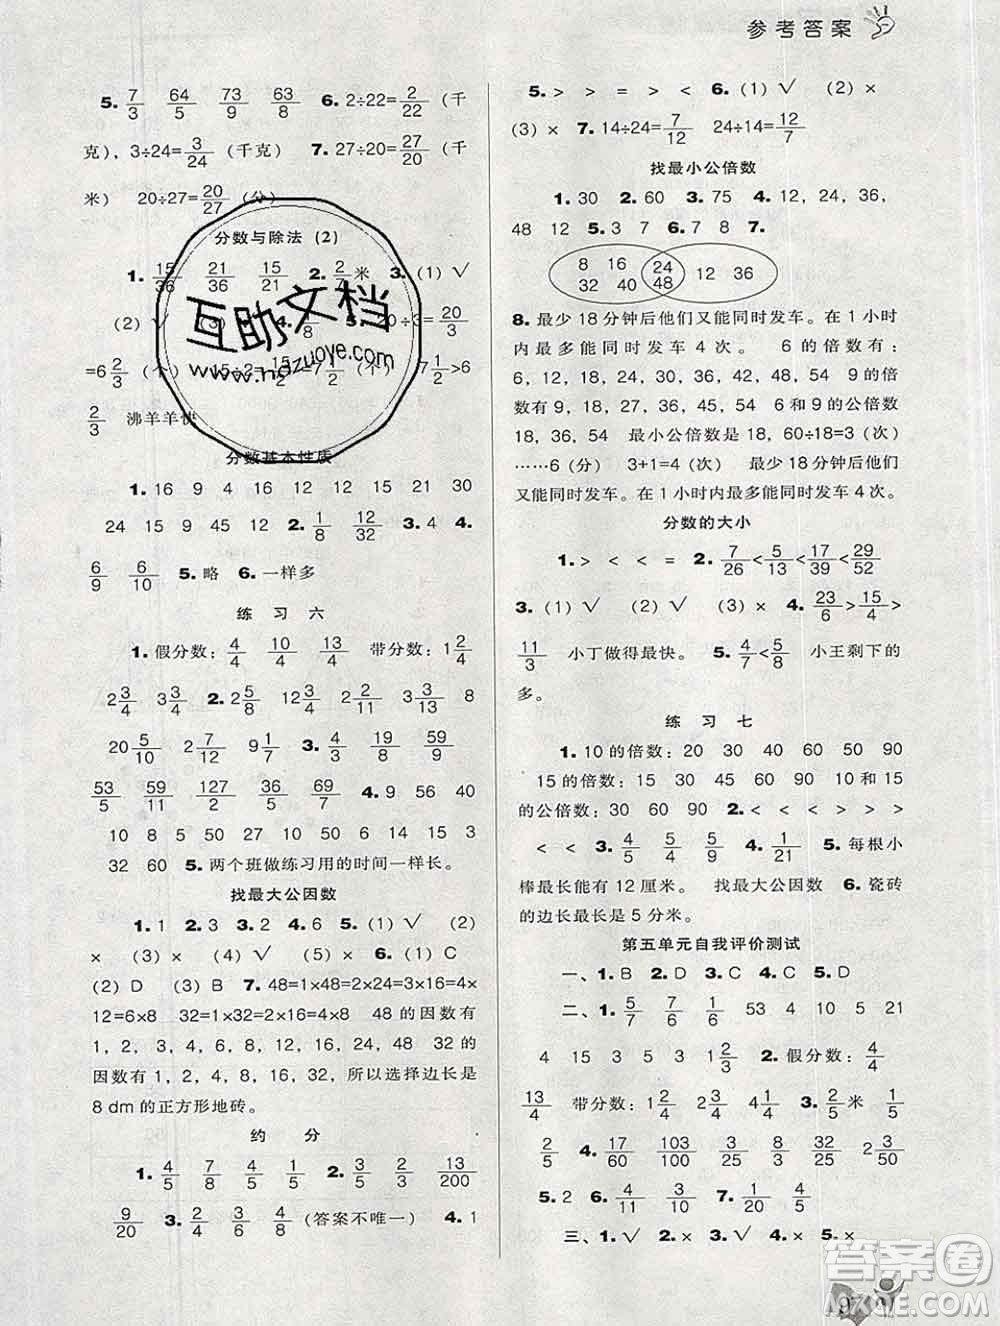 参考答案
5. 7/3 64/5 73/9 63/8 6. 2÷22=2/22 (千
克), 3÷24=3/24 (千克) 7. 27÷20=27/20 (千
米) 20÷27=20/27 (分)
分数与除法 (2)
1. 15/36 21/36 15/21 2. 2/7米 3. (1) √
(2) × (3) 1/8 5. 20÷3=20/3
=6 2/3 (个) 15÷2=15/2=7 1/2 (个) 7 1/2>6
2/3 沸羊羊快
分数基本性质
1. 16 9 4 16 12 12 15 21 30
24 15 9 45 12 2. 1/8 12/32 3. 4 4.
6/9 6/10 5. 略 6. 一样多
练 习 六
1. 假分数: 4/4 10/4 13/4 带分数: 1 2/4
2 3/4 3 3/4 2. 2 5/8 12 2 2/11 3 3/4 8
20 5/10 2 7/12 9 1/7 3. 4/3 19/8 59/9
53/5 59/11 127/2 36/5 69/6 4. 9 56 40
10 8 5 50 27 10 6 14 15 3
32 60 5. 两个班做练习用的时间一样长。
找最大公因数
1. 1 2. 3 3. 2 4. 6 5. (1) √ (2)
× (3) × (4) √ (5) × 6. (1) C
(2) D (3) B 7. 48=1×48=2×24=3×16=4×
12=6×8 32=1×32=2×16=4×8 48 的因数有
1, 2, 3, 4, 6, 8, 12, 16, 24, 48 32 的
因数有 1, 2, 4, 8, 16, 32, 所以选择边长是
8 dm 的正方形地砖。
约 分
1. 4/5 7/8 5/6 4/5 2. 3/5 2/3 13/200
9/20 3. 2/4 3/6 4/8 (答案不唯一) 4. 1
5. > > = > < 6. (1) √ (2) ×
(3) × 7. 14÷24=7/12 24÷14=12/7
找最小公倍数
1. 30 2. 60 3. 75 4. 12, 24, 36,
48 12 5. 3 7 6. 7 8 7.
8 16 24 12 36
32 40 48
8. 最少 18 分钟后他们又能同时发车。在 1 小时
内最多能同时发车 4 次。 6 的倍数有:
6, 12, 18, 24, 30, 36, 42, 48, 54 9 的倍
数有 9, 18, 27, 36, 45, 54 6 和 9 的公倍数
有 18, 36, 54 最小公倍数是 18, 60÷18=3 (次)
……6 (分) 3+1=4 (次) 最少 18 分钟后他们
又能同时发车。在 1 小时内最多能同时发车 4 次。
分数的大小
1. > < < = 2. 7/26<5/13<17/39<29/52
3. (1) √ (2) √ (3) × 4. 23/6>15/4>
11/3 小丁做得最快。 5. 4/7<5/8 小王剩下的
多。
练 习 七
1. 10 的倍数: 20 30 40 60 50 90
15 的倍数: 15 30 45 60 75 90 10 和 15
的公倍数: 30 60 90 2. < < < > > >
< < < 3. 4/5 5/9 4. 1/21 5. 每根小
棒最长能有 12 厘米。 找最大公因数 6. 瓷砖
的边长最长是 5 分米。
第五单元自我评价测试
一、1. B 2. D 3. C 4. C 5. D
二、1. 5/7 6/7 1/6 53 4 10 5 21
4 3 15 3 1 2/3 2. 假分数: 4/4
13/4 带分数: 1 2/4 2 3/4 4 1/4 3. 2/5米 1/5
2/5 4. 17/60 103/100 53/100 8/25 32/25 2 3/50
5. 2 6. 4/11 3/10 7. 6/8 8/12 5/15
三、1. √ 2. × 3. × 4. √ 5. ×
互助文档
www.hdzuoye.com
答案圈
97